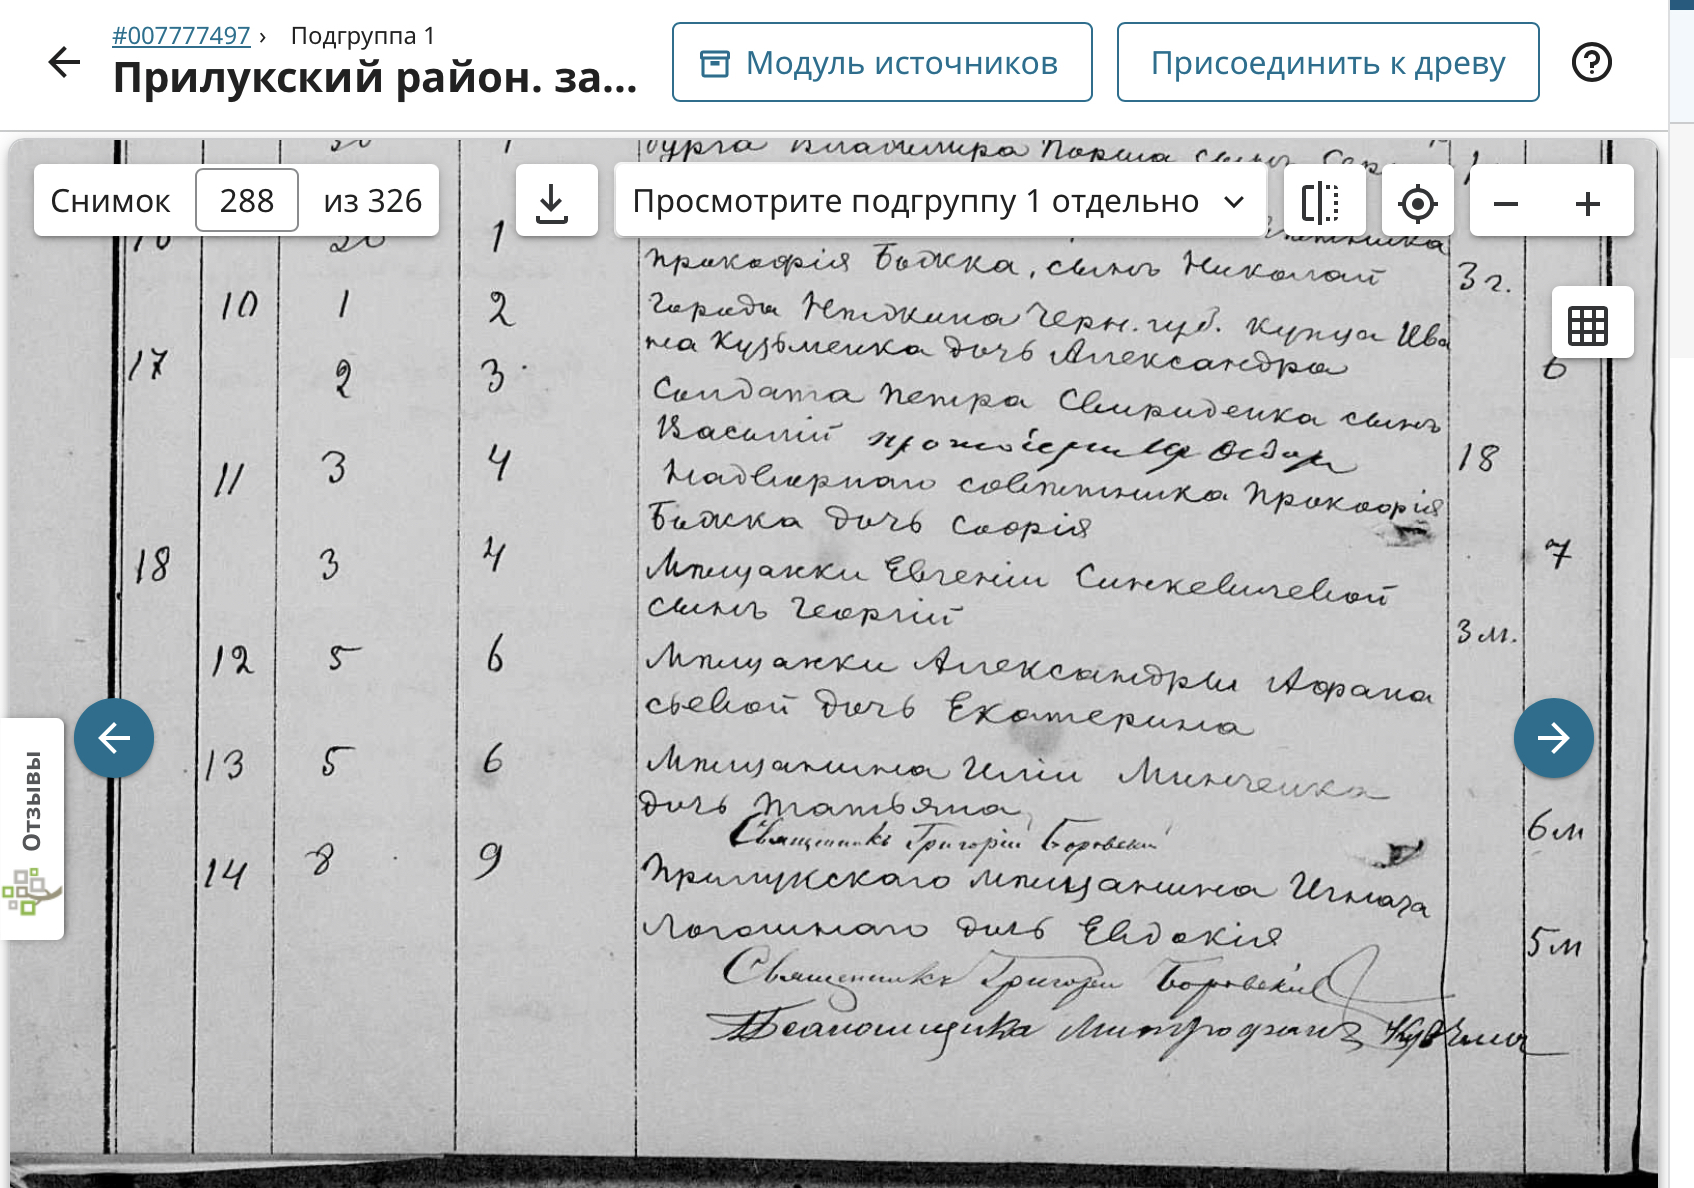 #007777497 › Подгруппа 1
Прилукский район. за...
Модуль источников
Присоединить к древу
Снимок 288 из 326
Просмотрите подгруппу 1 отдельно
Отзывы
бурга Владимира сынъ
1
Прокофія Божка, сынъ Николай 3 г.
10 1 2 Города Нѣжина Черн. губ. купца Ива
на Кузьменка дочь Александра 6
17 2 3 Солдата Петра Свириденка сынъ
Василій 18
11 3 4 Надворнаго совѣтника Прокофія
Божка дочь Софія 7
18 3 4 Мѣщанки Евгеніи Синкевичевой
сынъ Георгій 3 м.
12 5 6 Мѣщанки Александры Афана
сьевой дочь Екатерина
13 5 6 Мѣщанина Иліи Минченка
дочь Татьяна 6 м
Священникъ Григорій Боровскій
14 8 9 Прилукскаго мѣщанина Игната
дочь Евдокія 5 м
Священникъ Григорій Боровскій
Псаломщикъ Митрофанъ